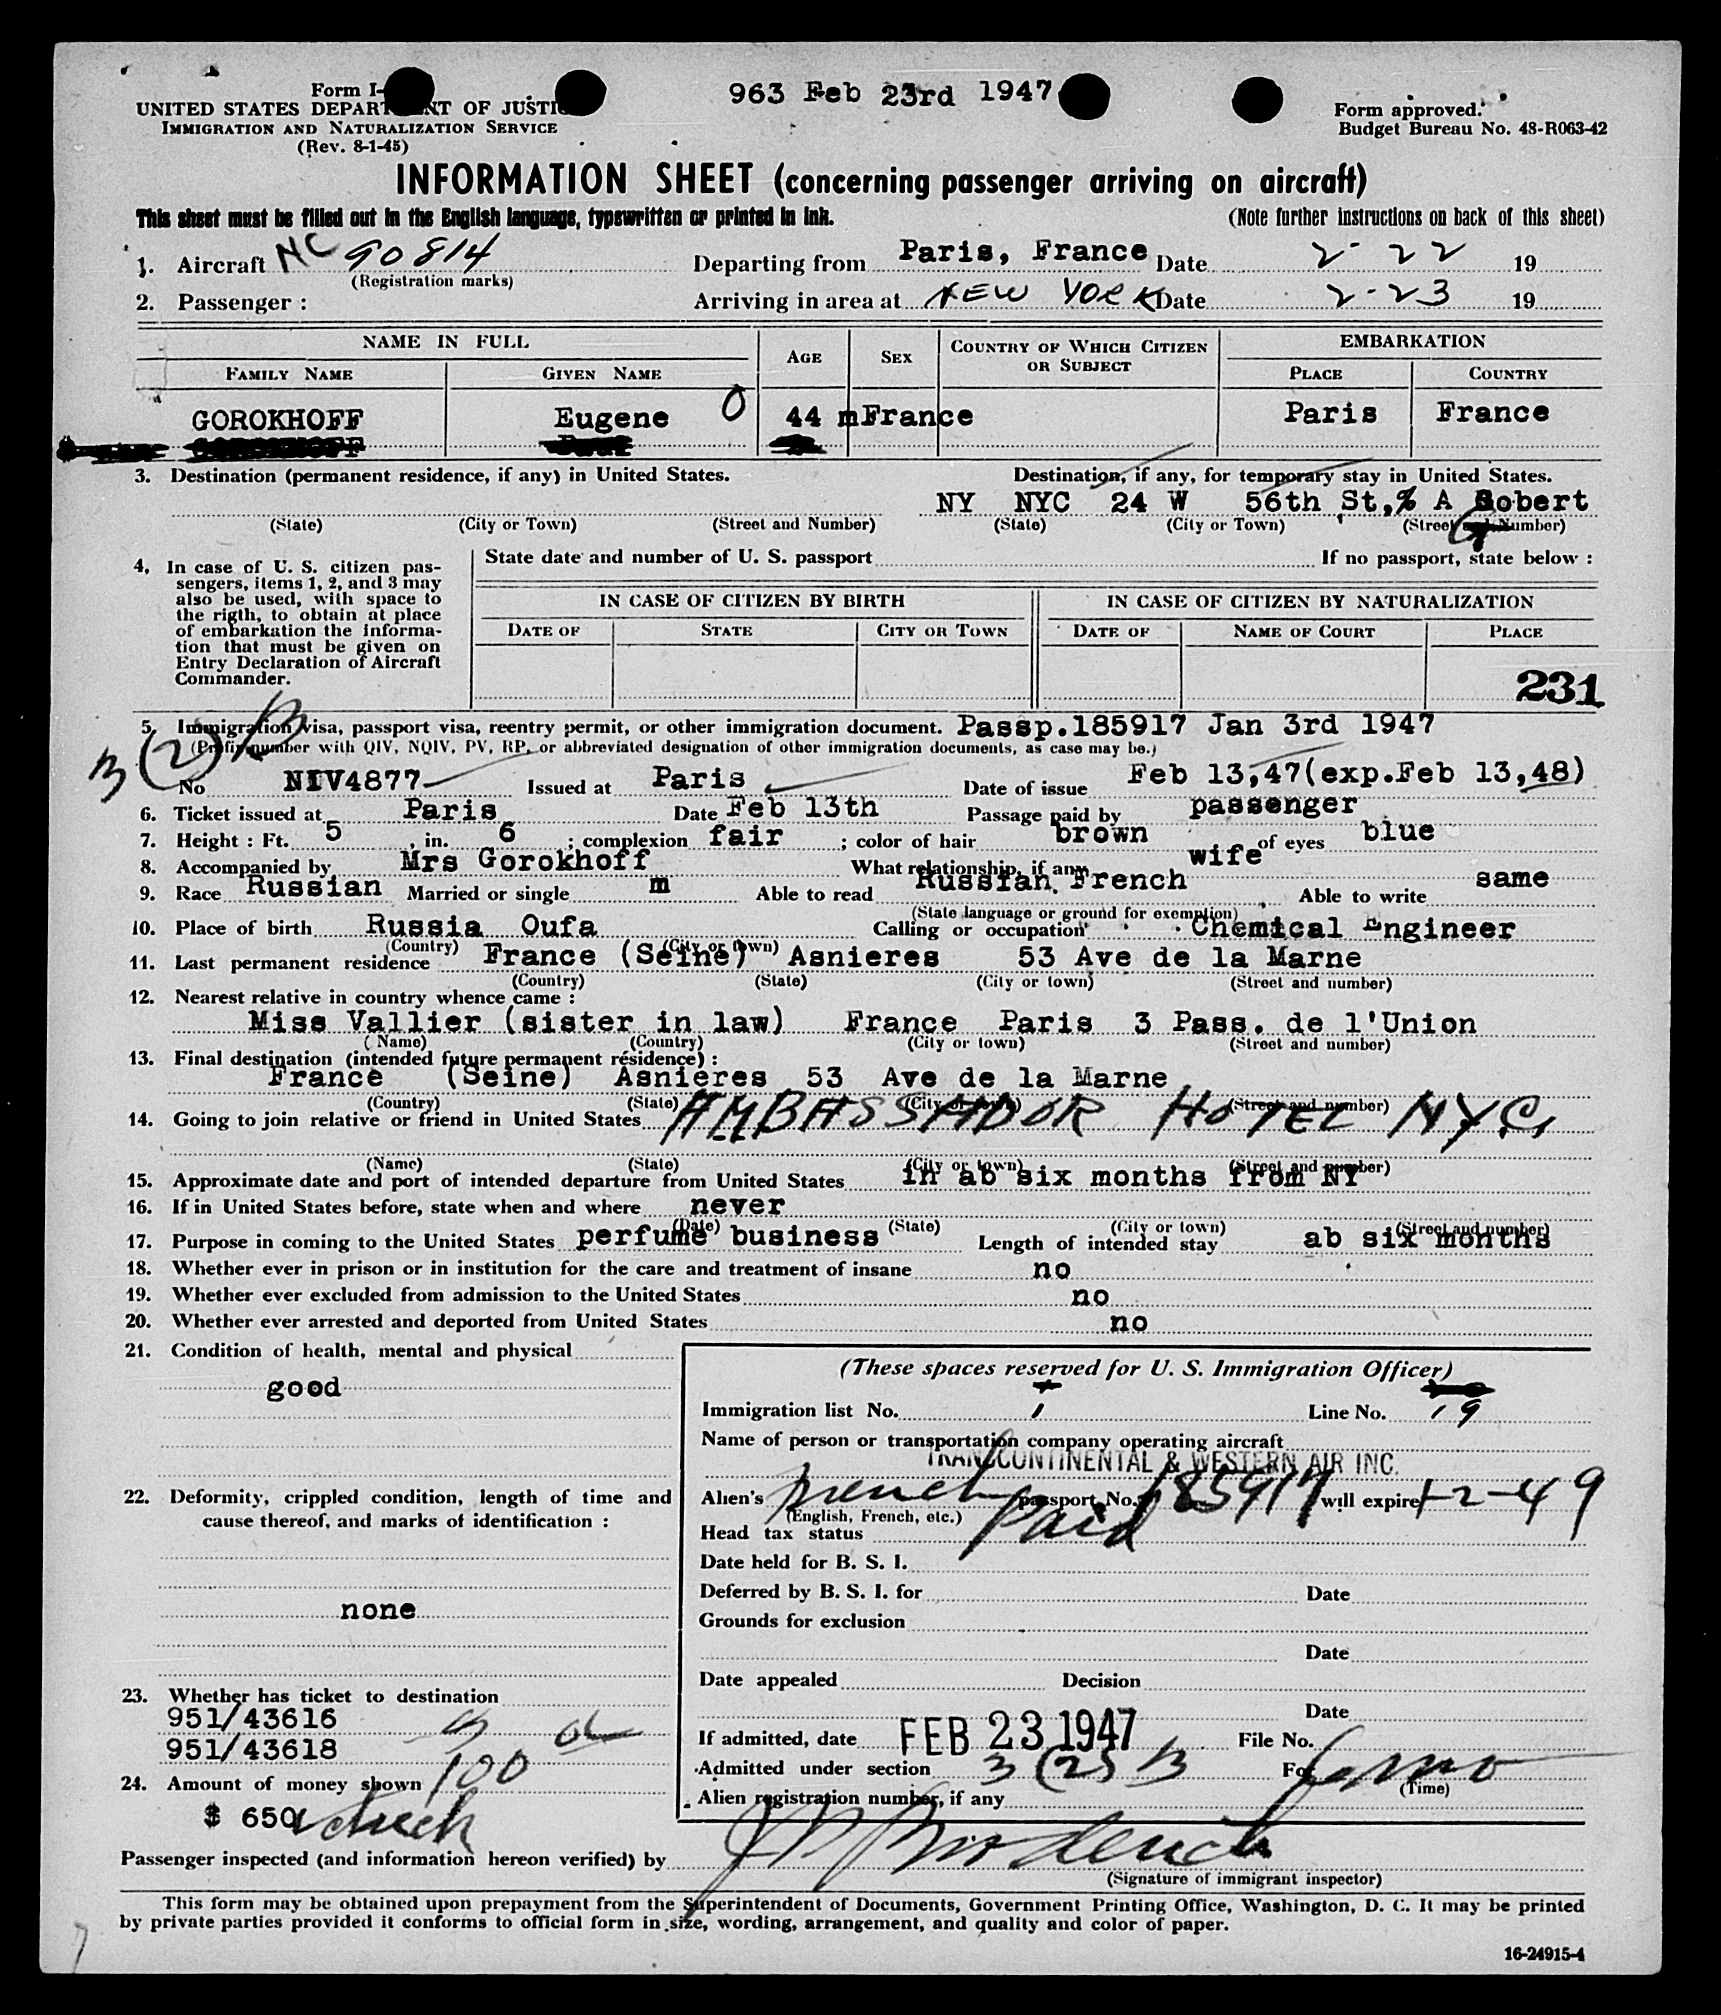 963 Feb 23rd 1947
Form I-
UNITED STATES DEPARTMENT OF JUSTICE
IMMIGRATION AND NATURALIZATION SERVICE
(Rev. 8-1-45)
Form approved.
Budget Bureau No. 48-R063-42
INFORMATION SHEET (concerning passenger arriving on aircraft)
This sheet must be filled out in the English language, typewritten or printed in ink. (Note further instructions on back of this sheet)
1. Aircraft NC 90814 Departing from Paris, France Date 2-22 19
(Registration marks)
2. Passenger : Arriving in area at NEW YORK Date 2-23 19
NAME IN FULL AGE SEX COUNTRY OF WHICH CITIZEN OR SUBJECT EMBARKATION
FAMILY NAME GIVEN NAME PLACE COUNTRY
GOROKHOFF Eugene 0 44 m France Paris France
3. Destination (permanent residence, if any) in United States. Destination, if any, for temporary stay in United States.
NY NYC 24 W 56th St,% A Gobert
(State) (City or Town) (Street and Number) (State) (City or Town) (Street and Number)
4. In case of U. S. citizen pas-
sengers, items 1, 2, and 3 may
also be used, with space to
the rigth, to obtain at place
of embarkation the informa-
tion that must be given on
Entry Declaration of Aircraft
Commander.
State date and number of U. S. passport If no passport, state below :
IN CASE OF CITIZEN BY BIRTH IN CASE OF CITIZEN BY NATURALIZATION
DATE OF STATE CITY OR TOWN DATE OF NAME OF COURT PLACE
231
5. Immigration visa, passport visa, reentry permit, or other immigration document. Passp.185917 Jan 3rd 1947
(Prefix number with QIV, NQIV, PV, RP, or abbreviated designation of other immigration documents, as case may be.)
3 (2) B
No NIV4877 Issued at Paris Date of issue Feb 13,47(exp.Feb 13,48)
6. Ticket issued at Paris Date Feb 13th Passage paid by passenger
7. Height : Ft. 5 , in. 6 ; complexion fair ; color of hair brown of eyes blue
8. Accompanied by Mrs Gorokhoff What relationship, if any wife
9. Race Russian Married or single m Able to read Russian, French Able to write same
(State language or ground for exemption)
10. Place of birth Russia Oufa Calling or occupation Chemical Engineer
(Country) (City or town)
11. Last permanent residence France (Seine) Asnieres 53 Ave de la Marne
(Country) (State) (City or town) (Street and number)
12. Nearest relative in country whence came :
Miss Vallier (sister in law) France Paris 3 Pass. de l'Union
(Name) (Country) (City or town) (Street and number)
13. Final destination (intended future permanent résidence) :
France (Seine) Asnieres 53 Ave de la Marne
(Country) (State) (City or town) (Street and number)
14. Going to join relative or friend in United States AMBASSADOR HOTEL NYC
(Name) (State) (City or town) (Street and number)
15. Approximate date and port of intended departure from United States in ab six months from NY
16. If in United States before, state when and where never
(Date) (State) (City or town) (Street and number)
17. Purpose in coming to the United States perfume business Length of intended stay ab six months
18. Whether ever in prison or in institution for the care and treatment of insane no
19. Whether ever excluded from admission to the United States no
20. Whether ever arrested and deported from United States no
21. Condition of health, mental and physical
good
22. Deformity, crippled condition, length of time and
cause thereof, and marks of identification :
none
23. Whether has ticket to destination
951/43616
951/43618
24. Amount of money shown 100
$ 650 check
(These spaces reserved for U. S. Immigration Officer)
Immigration list No. 1 Line No. 19
Name of person or transportation company operating aircraft
TRANSCONTINENTAL & WESTERN AIR INC.
Alien's French passport No. 185917 will expire 1-2-49
(English, French, etc.)
Head tax status Paid
Date held for B. S. I.
Deferred by B. S. I. for Date
Grounds for exclusion
Date
Date appealed Decision
Date
If admitted, date FEB 23 1947 File No.
Admitted under section 3 (2) B For 6 mo
(Time)
Alien registration number, if any
Passenger inspected (and information hereon verified) by
(Signature of immigrant inspector)
This form may be obtained upon prepayment from the Superintendent of Documents, Government Printing Office, Washington, D. C. It may be printed
by private parties provided it conforms to official form in size, wording, arrangement, and quality and color of paper.
16-24915-4